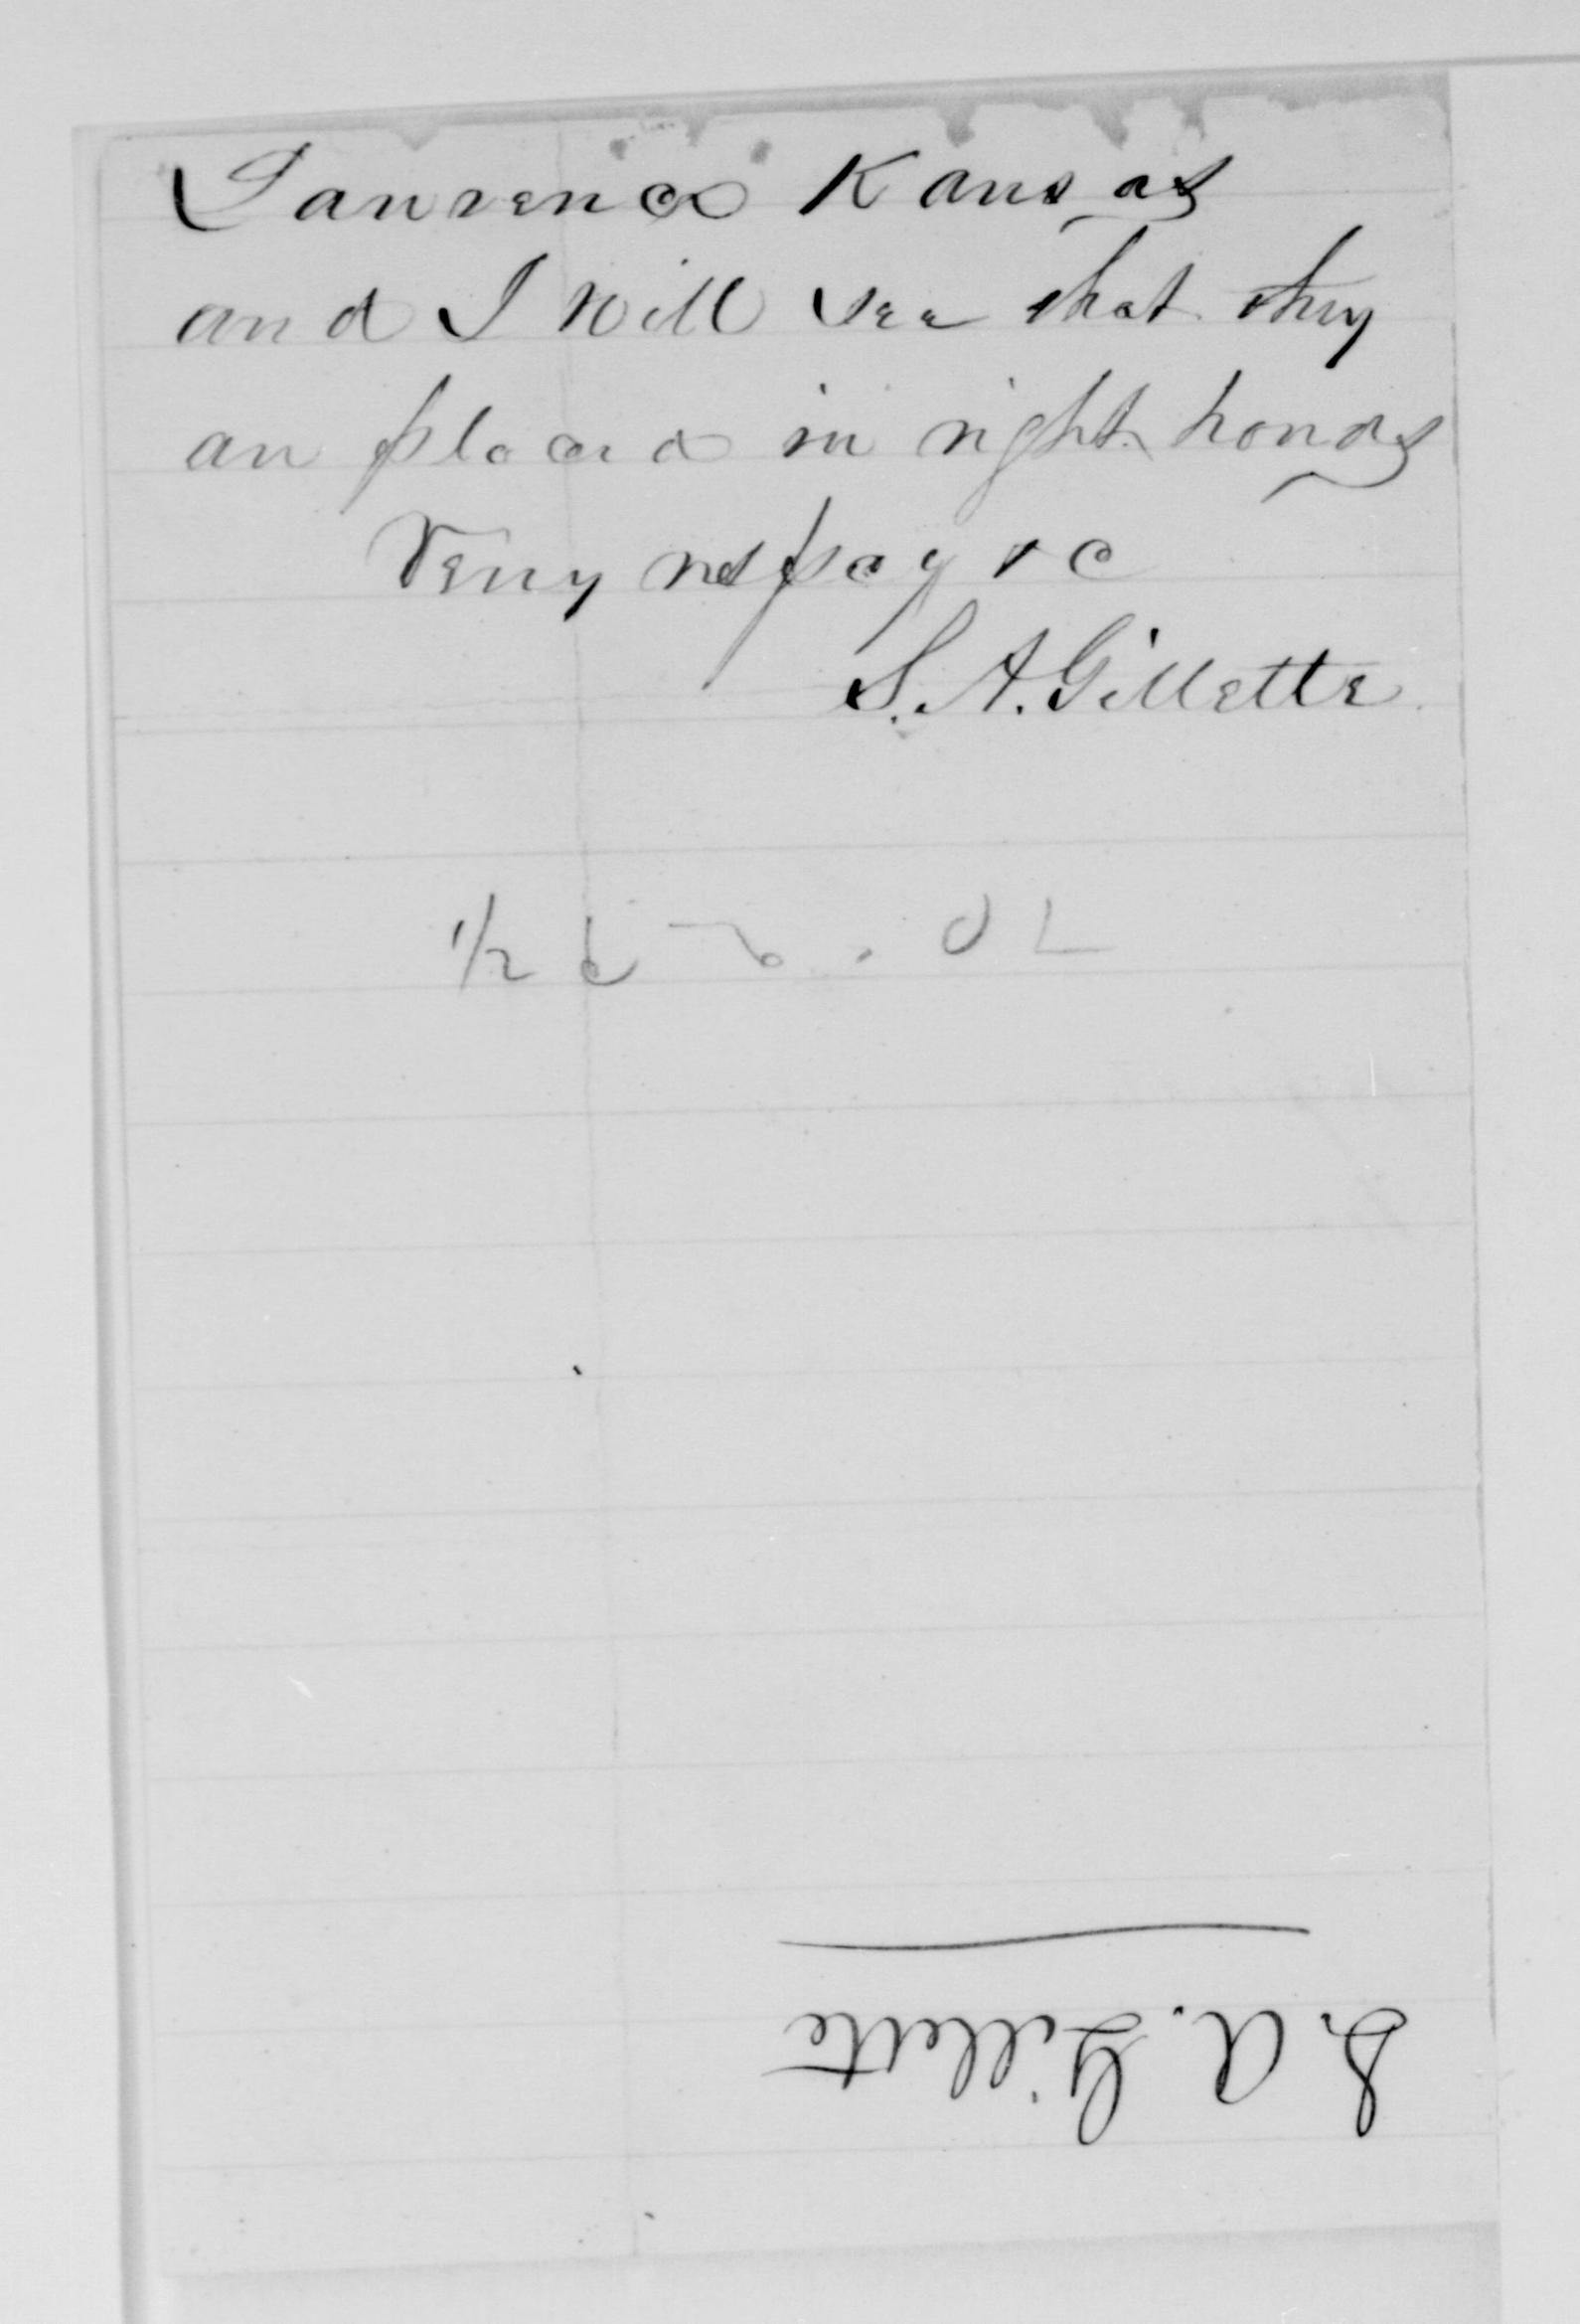 Lawrence Kansas
and I will see that they
are placed in right hands
Very respay &c
S. A. Gillette
S. A. Gillette